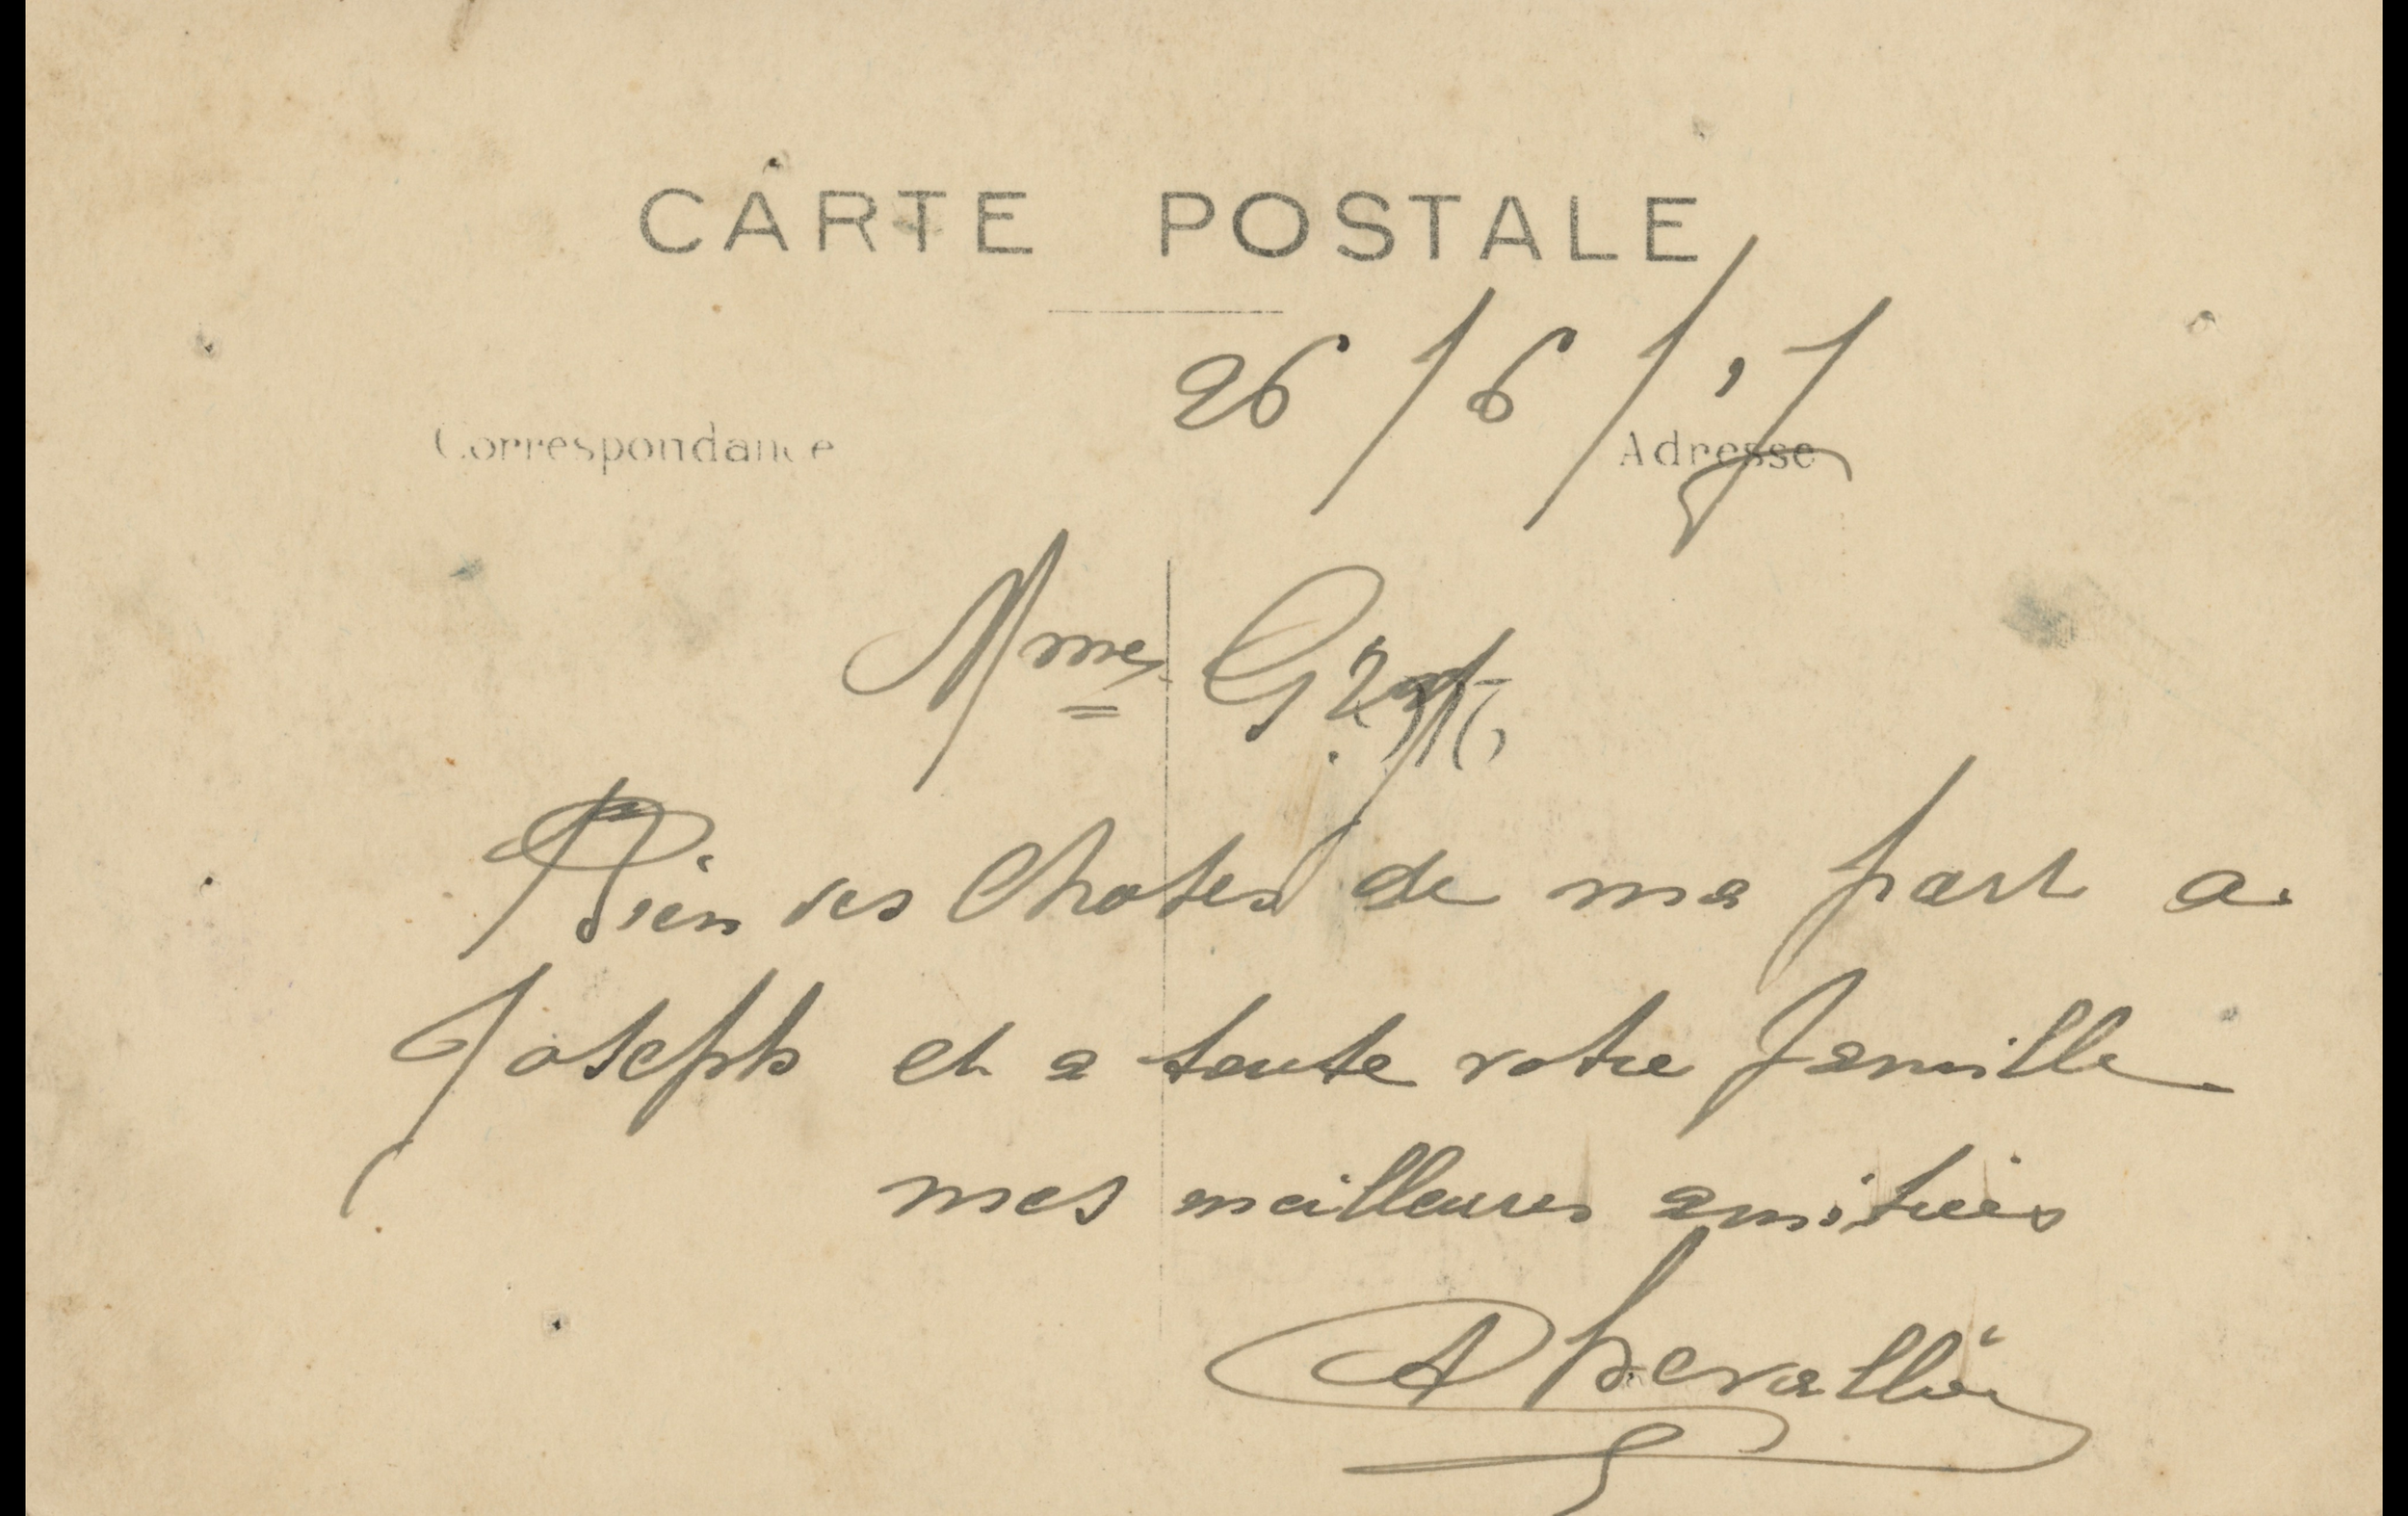 CARTE POSTALE
26/6/17
Correspondance Adresse
Mme
Bien des Choses de ma part a
Joseph et a toute votre famille
mes meilleures amitiés
Chevallier